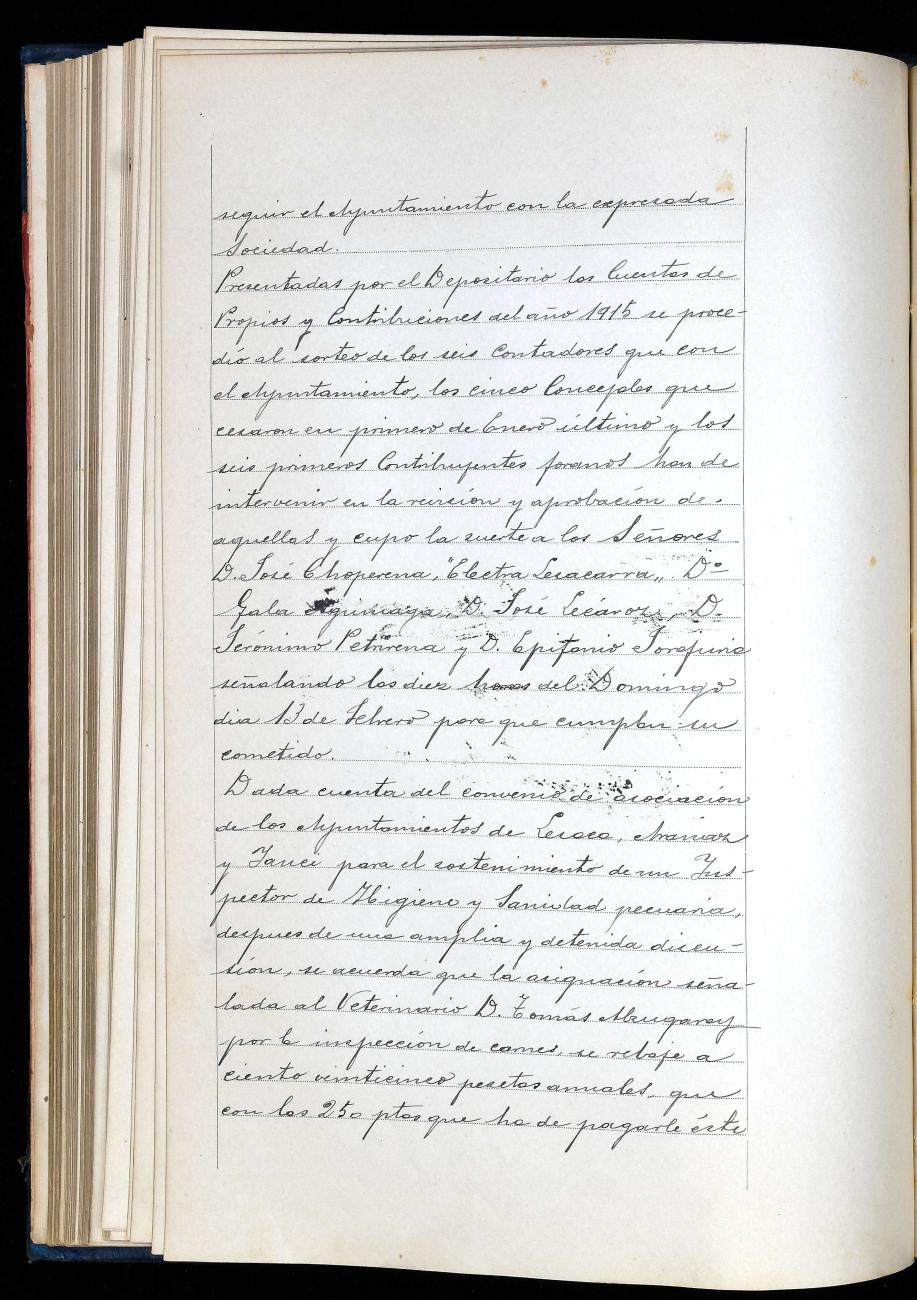 seguir el Ayuntamiento con la expresada
Sociedad.
Presentadas por el Depositario las Cuentas de
Propios y Contribuciones del año 1915 se proce-
dió al sorteo de los seis Contadores que con
el Ayuntamiento, los cinco Concejales que
cesaron en primero de Enero último y los
seis primeros Contribuyentes foranos han de
intervenir en la revisión y aprobación de
aquellas y cupo la suerte a los Señores
D. José Choperena, "Electra Lesacarra„ Dª
Gala Aguinaga, D. José Lecároz, D.
Jerónimo Petrirena y D. Epifanio
señalando las diez horas del Domingo
dia 13 de Febrero para que cumplan su
cometido.
Dada cuenta del convenio de asociación
de los Ayuntamientos de Lesaca, Aranaz
y Yanci para el sostenimiento de un Ins-
pector de Higiene y Sanidad pecuaria,
despues de una amplia y detenida discu-
sión, se acuerda que la asignación seña-
lada al Veterinario D. Tomás Alzugaray
por la inspección de carnes, se rebaje a
ciento vinticinco pesetas anuales, que
con las 250 ptas que ha de pagarle éste